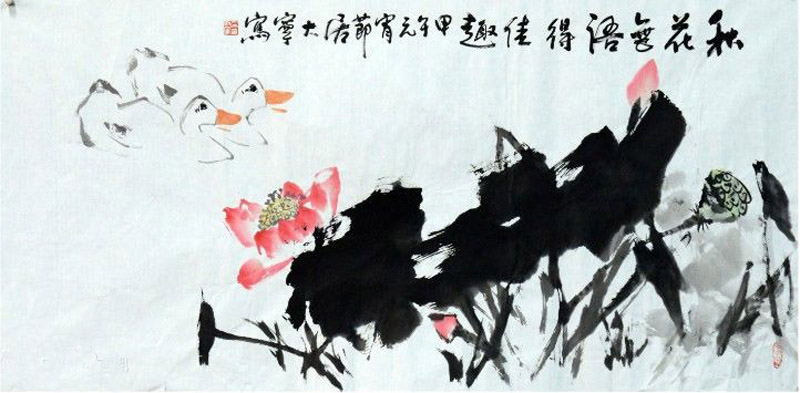 秋花無語得佳趣甲午元宵節居大寧寫